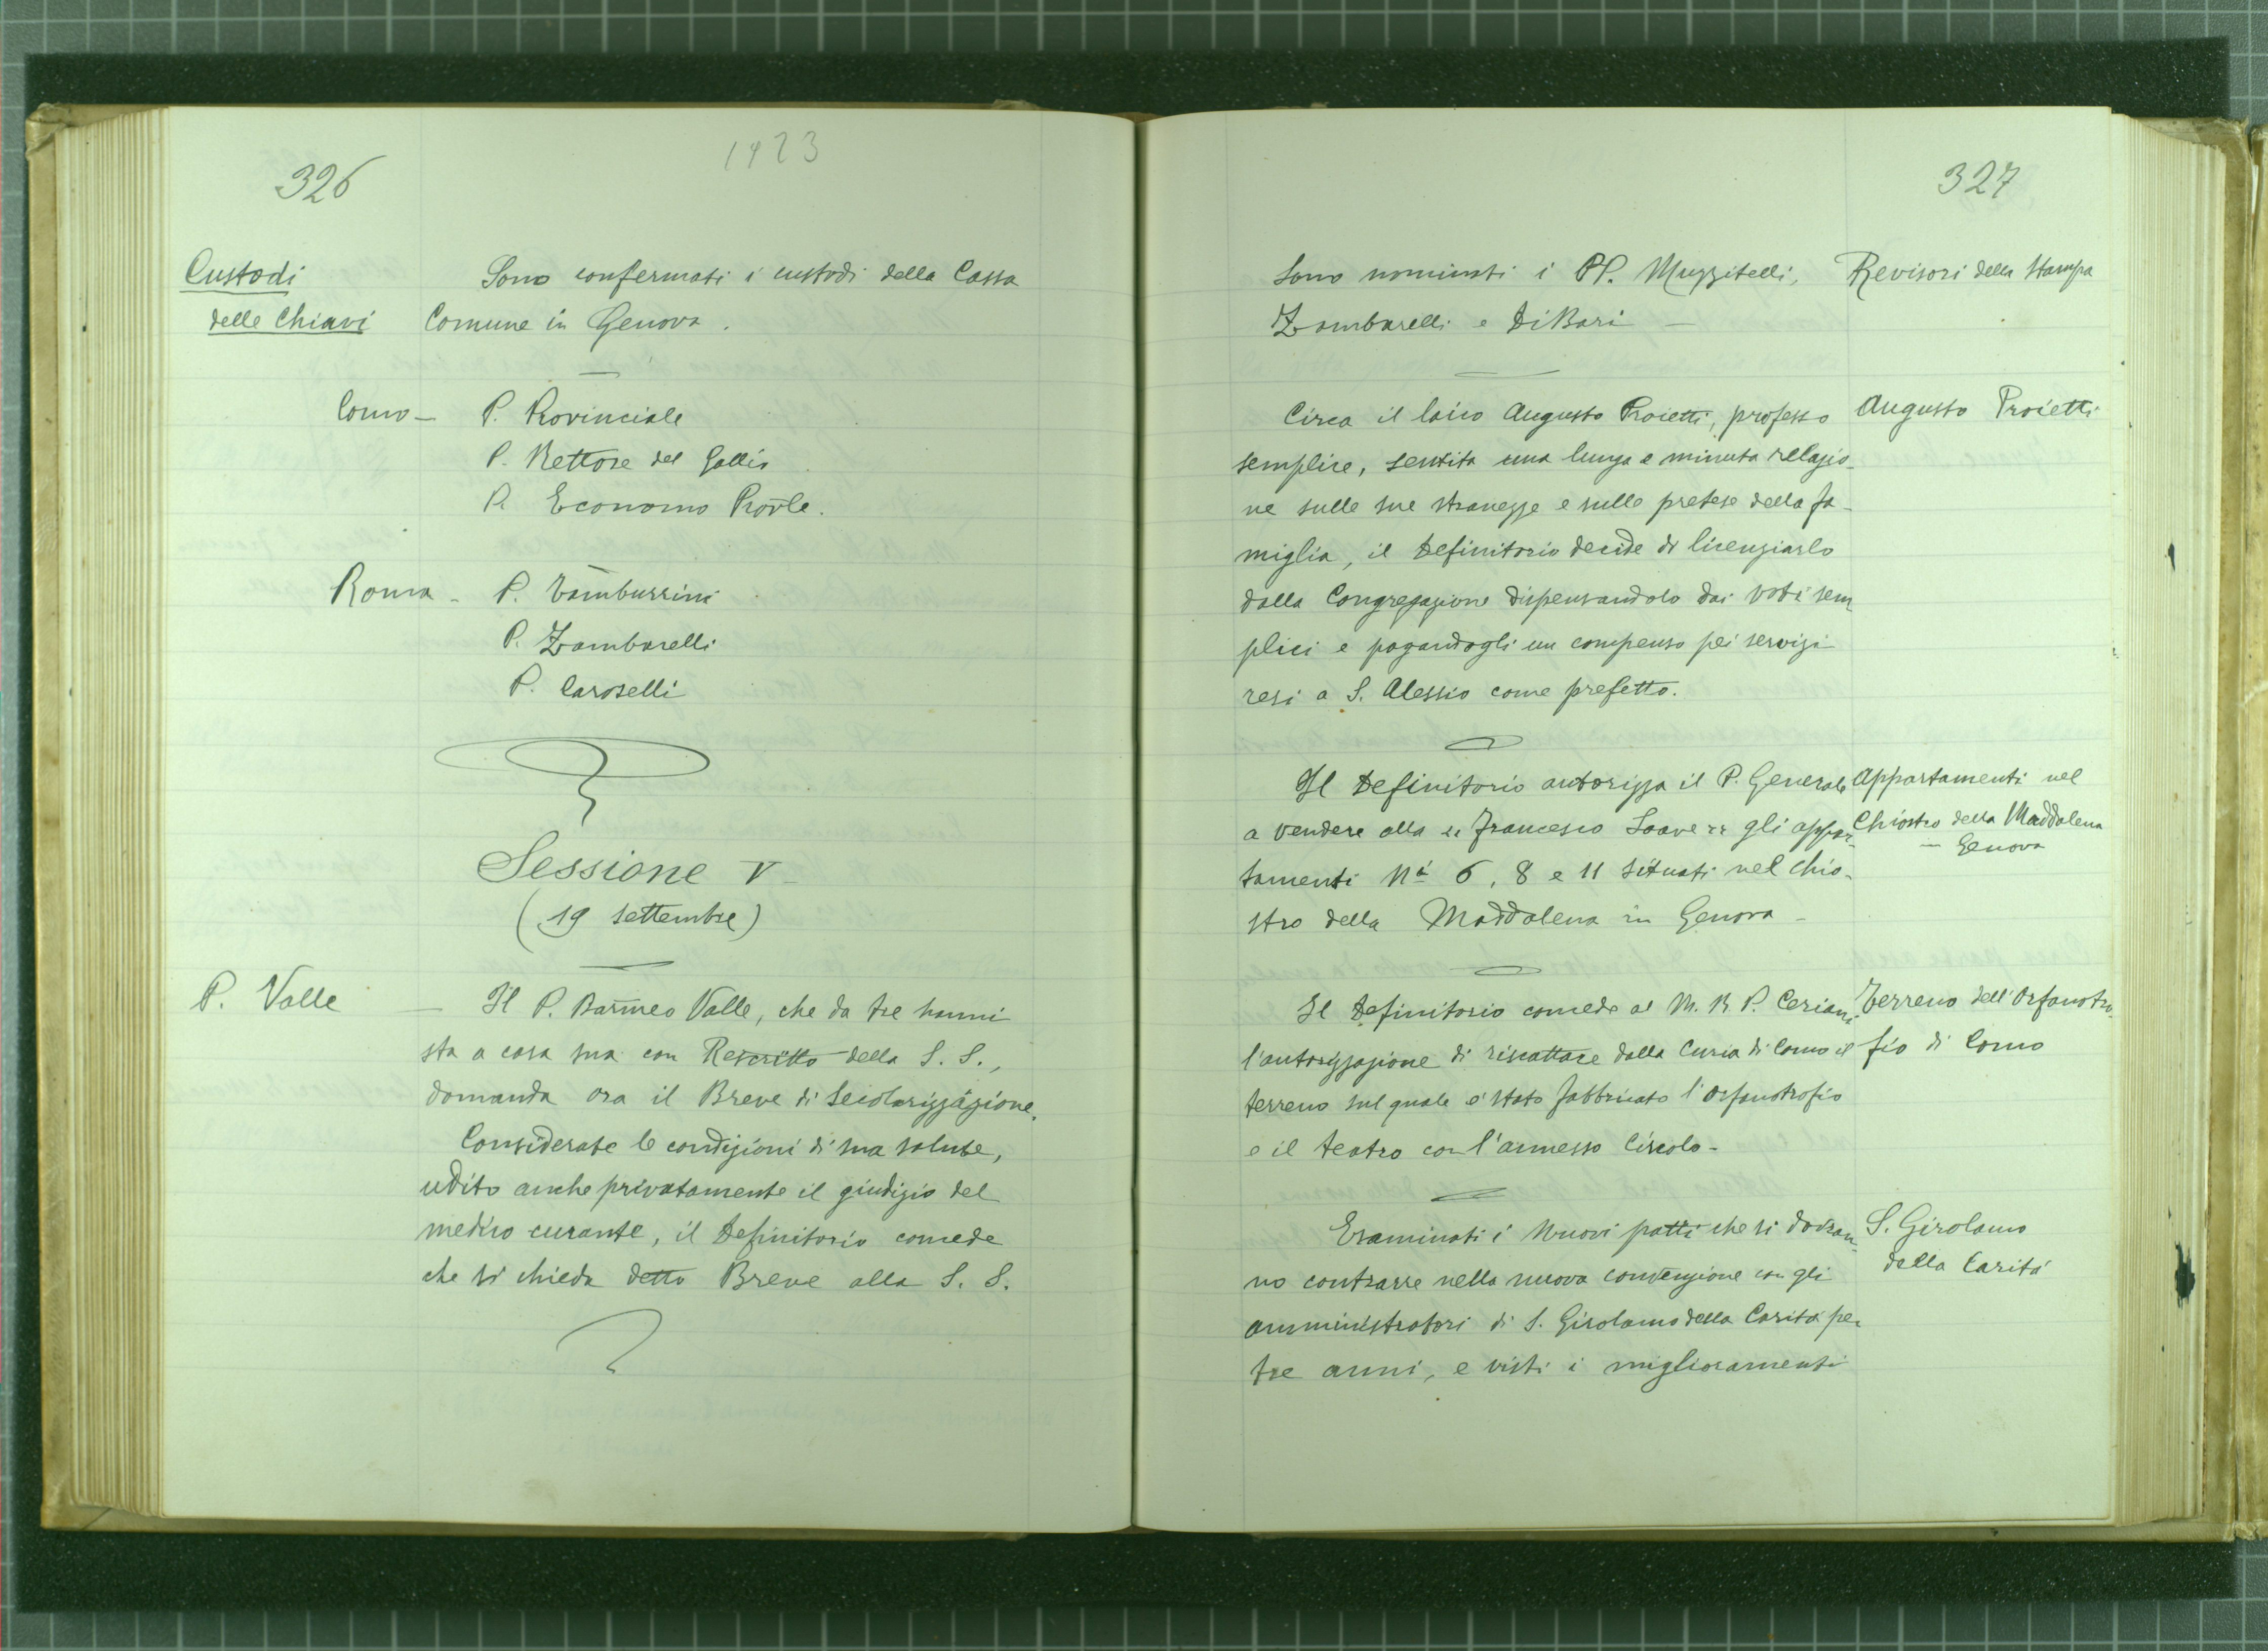 326
1923
Custodi
delle Chiavi
Sono confermati i custodi della Cassa
Comune in Genova.
Como - P. Provinciale
P. Rettore del Gallio
P. Economo Prov̄le.
Roma - P. Tamburrini
P. Zambarelli
P. Caroselli
Sessione V
(19 settembre)
P. Valle
- Il P. Barm̄eo Valle, che da tre hanni
sta a casa sua con Rescritto della S. S.,
domanda ora il Breve di Secolarizzazione.
Considerate le condizioni di sua salute,
udito anche privatamente il giudizio del
medico curante, il Definitorio concede
che si chieda detto Breve alla S. S.
327
Sono nominati i PP. Muzzitelli,
Zambarelli e Di Bari -
Revisori della Stampa
Circa il laico Augusto Proietti, professo
semplice, sentita una lunga e minuta relazio-
ne sulle sue stranezze e sulle pretese della fa-
miglia, il Definitorio decide di licenziarlo
dalla Congregazione dispensandolo dai voti sem
plici e pagandogli un compenso pei servizi
resi a S. Alessio come prefetto.
Augusto Proietti
Il Definitorio autorizza il P. Generale
a vendere alla "Francesco Soave" gli appar-
tamenti Ni 6, 8 e 11 situati nel chio-
stro della Maddalena in Genova -
Appartamenti nel
Chiostro della Maddalena
- Genova
Il Definitorio concede al M. R. P. Ceriani
l'autorizzazione di riscattare dalla Curia di Como il
terreno sul quale è stato fabbricato l'Orfanotrofio
e il teatro con l'annesso Circolo -
Terreno dell'Orfanotro-
fio di Como
Esaminati i nuovi patti che si dovran-
no contrarre nella nuova convenzione con gli
amministratori di S. Girolamo della Carità per
tre anni, e visti i miglioramenti
S. Girolamo
della Carità